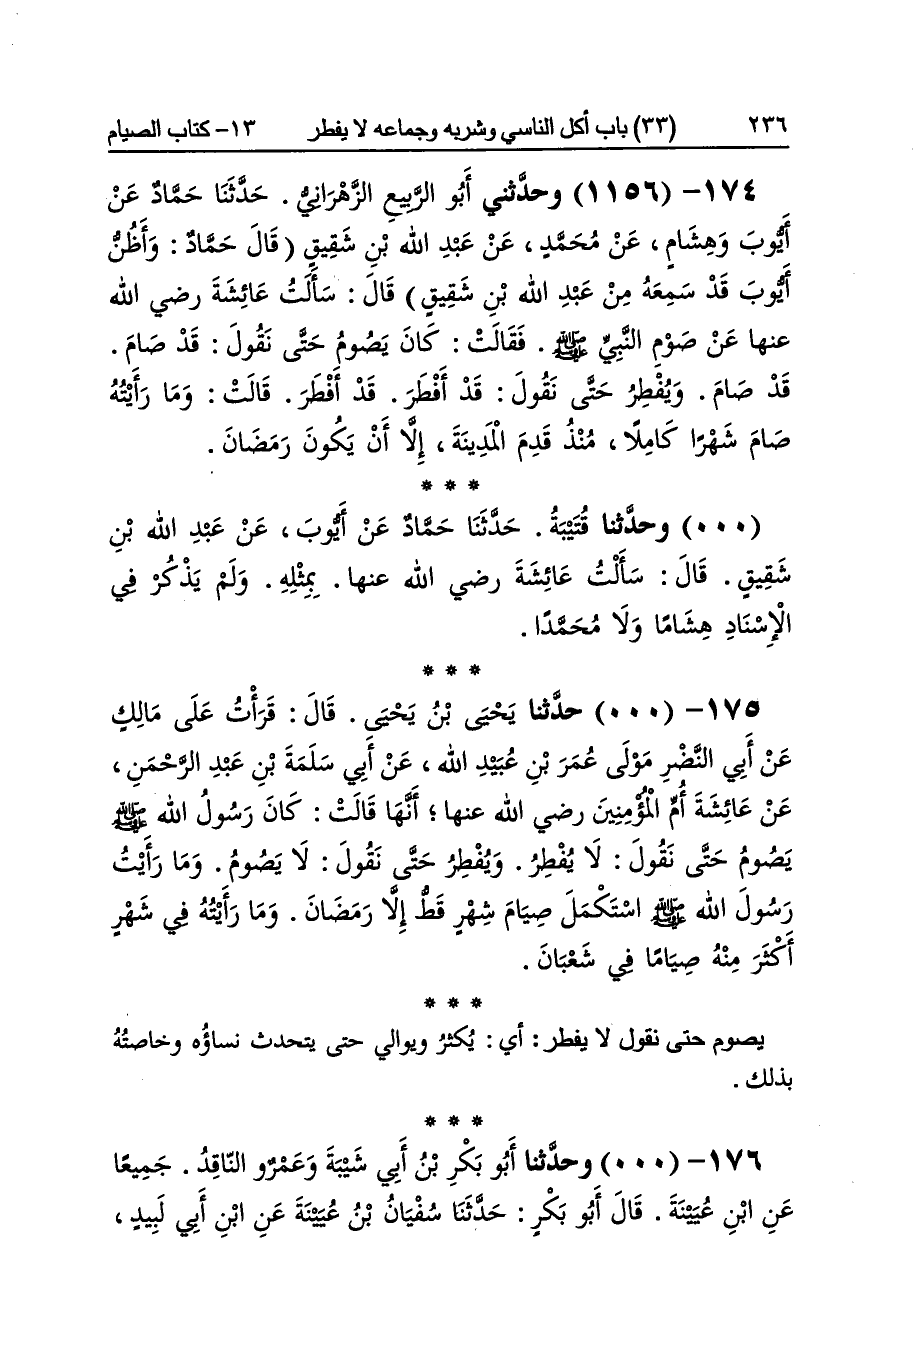 ٢٣٦ (٣٣) باب أكل الناسي وشربه وجماعه لا يفطر ١٣- كتاب الصيام
١٧٤- (١١٥٦) وحدَّثني أَبُو الرَّبِيعِ الزَّهْرَانِيُّ . حَدَّثَنَا حَمَّادٌ عَنْ
أَيُّوبَ وَهِشَامٍ ، عَنْ مُحَمَّدٍ ، عَنْ عَبْدِ الله بْنِ شَقِيقٍ ( قَالَ حَمَّادٌ : وَأَظُنُّ
أَيُّوبَ قَدْ سَمِعَهُ مِنْ عَبْدِ الله بْنِ شَقِيقٍ ) قَالَ : سَأَلْتُ عَائِشَةَ رضي الله
عنها عَنْ صَوْمِ النَّبِيِّ ﷺ . فَقَالَتْ : كَانَ يَصُومُ حَتَّى نَقُولَ : قَدْ صَامَ .
قَدْ صَامَ . وَيُفْطِرُ حَتَّى نَقُولَ : قَدْ أَفْطَرَ . قَدْ أَفْطَرَ . قَالَتْ : وَمَا رَأَيْتُهُ
صَامَ شَهْرًا كَامِلًا ، مُنْذُ قَدِمَ الْمَدِينَةَ ، إِلَّا أَنْ يَكُونَ رَمَضَانَ .
* * *
(٠٠٠) وحدَّثنا قُتَيْبَةُ . حَدَّثَنَا حَمَّادٌ عَنْ أَيُّوبَ ، عَنْ عَبْدِ الله بْنِ
شَقِيقٍ . قَالَ : سَأَلْتُ عَائِشَةَ رضي الله عنها . بِمِثْلِهِ . وَلَمْ يَذْكُرْ فِي
الْإِسْنَادِ هِشَامًا وَلَا مُحَمَّدًا .
* * *
١٧٥- (٠٠٠) حدَّثنا يَحْيَى بْنُ يَحْيَى . قَالَ : قَرَأْتُ عَلَى مَالِكٍ
عَنْ أَبِي النَّضْرِ مَوْلَى عُمَرَ بْنِ عُبَيْدِ الله ، عَنْ أَبِي سَلَمَةَ بْنِ عَبْدِ الرَّحْمَنِ ،
عَنْ عَائِشَةَ أُمِّ الْمُؤْمِنِينَ رضي الله عنها ؛ أَنَّهَا قَالَتْ : كَانَ رَسُولُ الله ﷺ
يَصُومُ حَتَّى نَقُولَ : لَا يُفْطِرُ . وَيُفْطِرُ حَتَّى نَقُولَ : لَا يَصُومُ . وَمَا رَأَيْتُ
رَسُولَ الله ﷺ اسْتَكْمَلَ صِيَامَ شِهْرٍ قَطُّ إِلَّا رَمَضَانَ . وَمَا رَأَيْتُهُ فِي شَهْرٍ
أَكْثَرَ مِنْهُ صِيَامًا فِي شَعْبَانَ .
* * *
يصوم حتى نقول لا يفطر : أي : يُكثرُ ويوالي حتى يتحدث نساؤُه وخاصتُهُ
بذلك .
* * *
١٧٦- (٠٠٠) وحدَّثنا أَبُو بَكْرِ بْنُ أَبِي شَيْبَةَ وَعَمْرٌو النَّاقِدُ . جَمِيعًا
عَنِ ابْنِ عُيَيْنَةَ . قَالَ أَبُو بَكْرٍ : حَدَّثَنَا سُفْيَانُ بْنُ عُيَيْنَةَ عَنِ ابْنِ أَبِي لَبِيدٍ ،